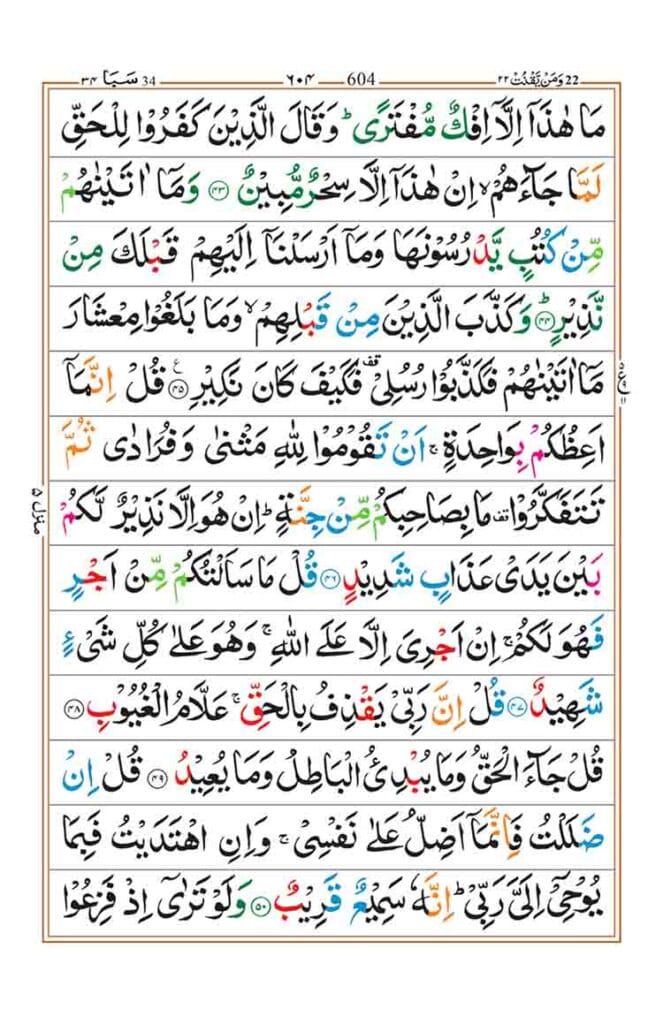 22 وَمَنْ يَّقْنُتْ ۲۲ 604 ۶۰۴ 34 سَبَا ۳۴
مَا هٰذَاۤ اِلَّاۤ اِفْكٌ مُّفْتَرًىؕ وَقَالَ الَّذِيْنَ كَفَرُوْا لِلْحَقِّ
لَمَّا جَآءَهُمْۙ اِنْ هٰذَاۤ اِلَّا سِحْرٌ مُّبِيْنٌ ﴿۴۳﴾ وَمَاۤ اٰتَيْنٰهُمْ
مِّنْ كُتُبٍ يَّدْرُسُوْنَهَا وَمَاۤ اَرْسَلْنَاۤ اِلَيْهِمْ قَبْلَكَ مِنْ
نَّذِيْرٍؕ ﴿۴۴﴾ وَكَذَّبَ الَّذِيْنَ مِنْ قَبْلِهِمْۙ وَمَا بَلَغُوْا مِعْشَارَ
مَاۤ اٰتَيْنٰهُمْ فَكَذَّبُوْا رُسُلِيْ قف فَكَيْفَ كَانَ نَكِيْرِ ﴿۴۵﴾ ع قُلْ اِنَّمَاۤ
اَعِظُكُمْ بِوَاحِدَةٍۚ اَنْ تَقُوْمُوْا لِلّٰهِ مَثْنٰى وَفُرَادٰى ثُمَّ
تَتَفَكَّرُوْا قف مَا بِصَاحِبِكُمْ مِّنْ جِنَّةٍؕ اِنْ هُوَ اِلَّا نَذِيْرٌ لَّكُمْ
بَيْنَ يَدَيْ عَذَابٍ شَدِيْدٍ ﴿۴۶﴾ قُلْ مَا سَاَلْتُكُمْ مِّنْ اَجْرٍ
فَهُوَ لَكُمْؕ اِنْ اَجْرِيَ اِلَّا عَلَى اللّٰهِۚ وَهُوَ عَلٰى كُلِّ شَيْءٍ
شَهِيْدٌ ﴿۴۷﴾ قُلْ اِنَّ رَبِّيْ يَقْذِفُ بِالْحَقِّۚ عَلَّامُ الْغُيُوْبِ ﴿۴۸﴾
قُلْ جَآءَ الْحَقُّ وَمَا يُبْدِئُ الْبَاطِلُ وَمَا يُعِيْدُ ﴿۴۹﴾ قُلْ اِنْ
ضَلَلْتُ فَاِنَّمَاۤ اَضِلُّ عَلٰى نَفْسِيْۚ وَاِنِ اهْتَدَيْتُ فَبِمَا
يُوْحِيْۤ اِلَيَّ رَبِّيْؕ اِنَّهٗ سَمِيْعٌ قَرِيْبٌ ﴿۵۰﴾ وَلَوْ تَرٰىۤ اِذْ فَزِعُوْا
منزل ۵